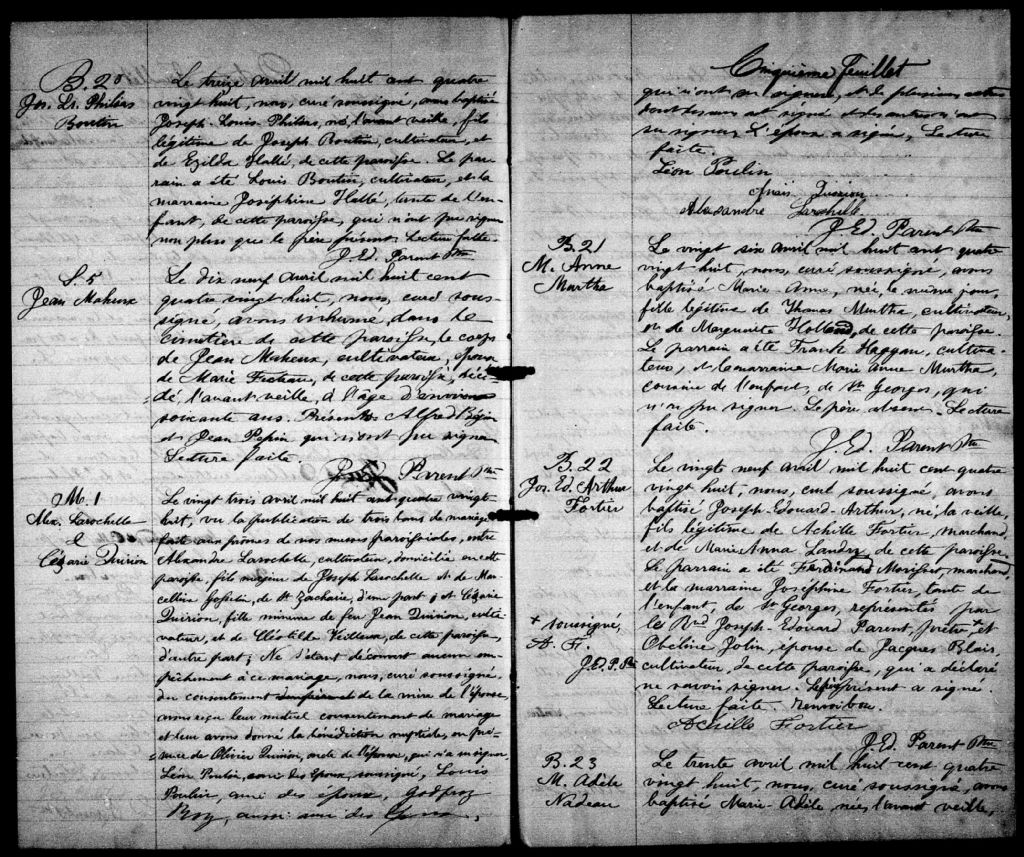 B. 20
Jos. Ls. Philéas
Boutin
Le treize avril mil huit cent quatre
vingt huit, nous, curé soussigné, avons baptisé
Joseph-Louis-Philéas, né l'avant veille, fils
légitime de Joseph Boutin, cultivateur, et
de Ezilda Hallé, de cette paroisse. Le par-
rain a été Louis Boutin, cultivateur, et la
marraine Joséphine Hallé, tante de l'en-
fant, de cette paroisse, qui n'ont pu signer
non plus que le père présent. Lecture faite.
J. Ed. Parent Ptre
S. 5
Jean Maheux
Le dix neuf avril mil huit cent
quatre vingt huit, nous, curé sous-
signé, avons inhumé, dans le
cimetière de cette paroisse, le corps
de Jean Maheux, cultivateur, époux
de Marie Fecteau, de cette paroisse, décé-
dé, l'avant veille, à l'âge d'environ
soixante ans. Présents Alfred Bégin
et Jean Pepin qui n'ont pu signer
Lecture faite.
Parent Ptre
M. 1
Alex. Larochelle
&
Cézarie Quirion
Le vingt trois avril mil huit cent quatre vingt
huit, vu la publication de trois bans de mariage
fait aux prônes de nos messes paroissiales, entre
Alexandre Larochelle, cultivateur, domicilié en cette
paroisse, fils majeur de Joseph Larochelle et de Mar-
celline Gosselin, de St Zacharie, d'une part; et Cézarie
Quirion, fille mineure de feu Jean Quirion, culti-
vateur, et de Cléotilde Veilleux, de cette paroisse,
d'autre part; Ne s'étant découvert aucun em-
pêchement à ce mariage, nous, curé soussigné,
du consentement de la mère de l'épouse,
avons reçu leur mutuel consentement de mariage
et leur avons donné la bénédiction nuptiale, en pré-
sence de Olivier Quirion, oncle de l'épouse, qui n'a su signer,
Léon Poulin, ami des époux, soussigné, Louis
Poulin, ami des époux, Godfroy
Roy, aussi ami des époux,
Cinquième feuillet
qui n'ont su signer, et de plusieurs autres
dont les uns ont signé et les autres n'ont
su signer. L'époux a signé. Lecture
faite.
Léon Poulin
Anaïs Quirion
Alexandre Larochelle
J. Ed. Parent Ptre
B. 21
M. Anne
Murtha
Le vingt six avril mil huit cent quatre
vingt huit, nous, curé soussigné, avons
baptisé Marie-Anne, née, le même jour,
fille légitime de Thomas Murtha, cultivateur,
et de Marguerite Holland, de cette paroisse.
Le parrain a été Frank Haggan, cultiva-
teur, et la marraine Marie Anne Murtha,
cousine de l'enfant, de St Georges, qui
n'a pu signer. Le père absent. Lecture
faite.
J. Ed. Parent Ptre
B. 22
Jos. Ed. Arthur
Fortier
Le vingt neuf avril mil huit cent quatre
vingt huit, nous, curé soussigné, avons
baptisé Joseph-Edouard-Arthur, né, la veille,
fils légitime de Achille Fortier, marchand,
et de Marie Anna Landry, de cette paroisse.
Le parrain a été Ferdinand Morisset, marchand,
et la marraine Joséphine Fortier, tante de
l'enfant, de St Georges, représentés par
le Rvd Joseph-Edouard Parent, prêtre+, et
Obeline Jolin, épouse de Jacques Blais,
cultivateur, de cette paroisse, qui a déclaré
ne savoir signer. Le père présent a signé.
Lecture faite. renvoi bon.
Achille Fortier
J. Ed. Parent Ptre
+ soussigné,
A. F.
J. Ed. P. Ptre
B. 23
M. Adèle
Nadeau
Le trente avril mil huit cent quatre
vingt huit, nous, curé soussigné, avons
baptisé Marie-Adèle, née, l'avant veille,